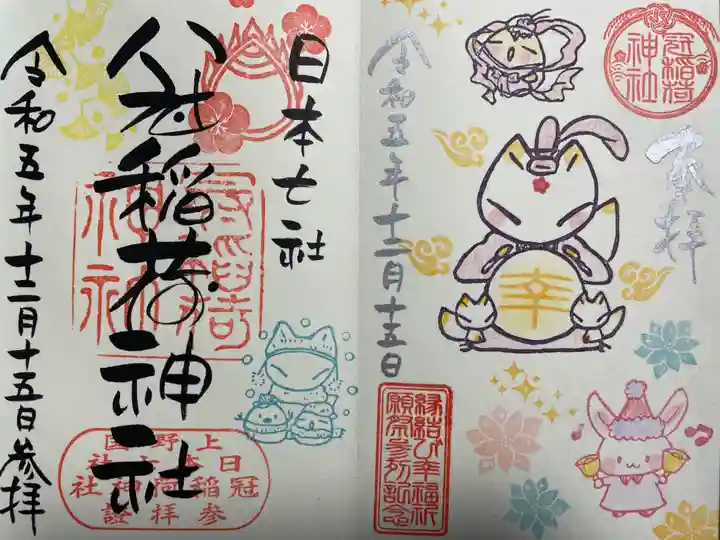 日本七社
冠稲荷神社
令和五年十二月十五日参拝
冠稲荷
神社
上野国
日本七社
冠稲荷神社
参拝証
冠稲荷
神社
奉拝
幸
令和五年十二月十五日
縁結び幸福祈
願祭参列記念